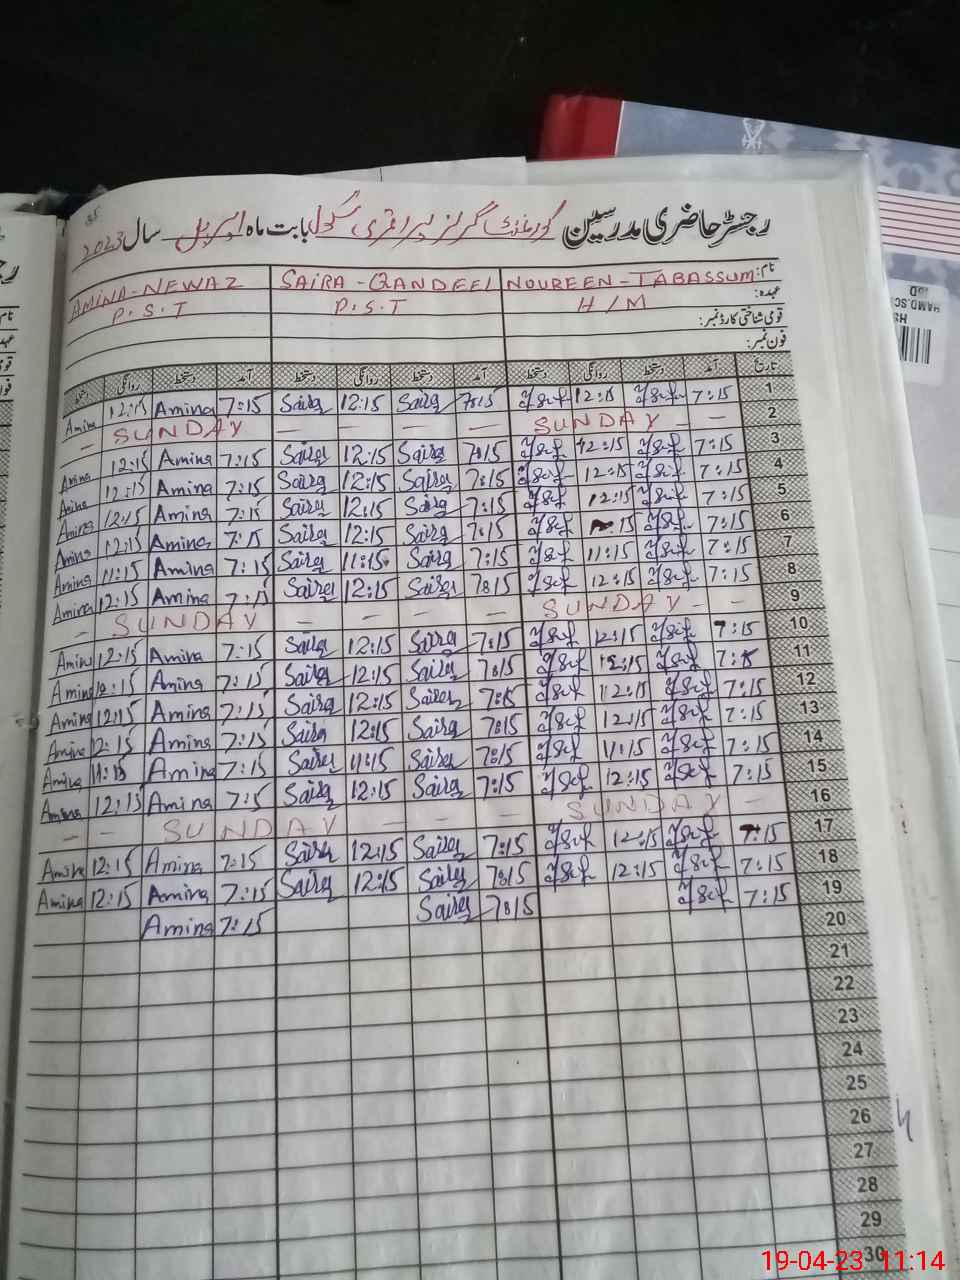 رجسٹر حاضری مدرسین گورنمنٹ گرلز پرائمری سکول بابت ماہ اپریل سال 2023
نام: NOUREEN-TABASSUM SAIRA-QANDEEL AMINA-NEWAZ
عہدہ: H/M P.S.T P.S.T
قومی شناختی کارڈ نمبر:
فون نمبر:
تاریخ آمد دستخط روانگی دستخط آمد دستخط روانگی دستخط آمد دستخط روانگی دستخط
1 7:15 12:15 7:15 Saira 12:15 Saira 7:15 Amina 12:15 Amina
2 SUNDAY SUNDAY
3 7:15 12:15 7:15 Saira 12:15 Saira 7:15 Amina 12:15 Amina
4 7:15 12:15 7:15 Saira 12:15 Saira 7:15 Amina 12:15 Amina
5 7:15 12:15 7:15 Saira 12:15 Saira 7:15 Amina 12:15 Amina
6 7:15 15 7:15 Saira 12:15 Saira 7:15 Amina 12:15 Amina
7 7:15 11:15 7:15 Saira 11:15 Saira 7:15 Amina 11:15 Amina
8 7:15 12:15 7:15 Saira 12:15 Saira 7:15 Amina 12:15 Amina
9 SUNDAY SUNDAY
10 7:15 12:15 7:15 Saira 12:15 Saira 7:15 Amina 12:15 Amina
11 7:15 12:15 7:15 Saira 12:15 Saira 7:15 Amina 12:15 Amina
12 7:15 12:15 7:15 Saira 12:15 Saira 7:15 Amina 12:15 Amina
13 7:15 12:15 7:15 Saira 12:15 Saira 7:15 Amina 12:15 Amina
14 7:15 11:15 7:15 Saira 11:15 Saira 7:15 Amina 11:15 Amina
15 7:15 12:15 7:15 Saira 12:15 Saira 7:5 Amina 12:15 Amina
16 SUNDAY SUNDAY
17 7:15 12:15 7:15 Saira 12:15 Saira 7:15 Amina 12:15 Amina
18 7:15 12:15 7:15 Saira 12:15 Saira 7:15 Amina 12:15 Amina
19 7:15 7:15 Saira 7:15 Amina
20
21
22
23
24
25
26
27
28
29
30
19-04-23 11:14